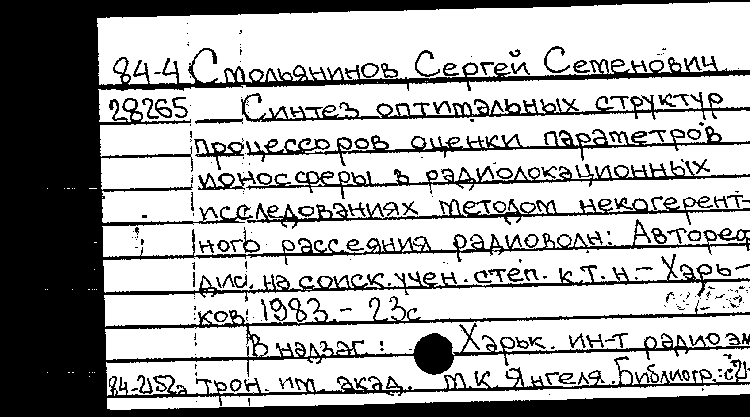 84-4 Стольянинов Сергей Семенович
28265 Синтез оптимальных структур
процессоров оценки параметров
ионосферы в радиолокационных
исследованиях методом некогерент-
ного рассеяния радиоволн: Автореф
дис. на соиск. учен. степ. к.т.н. - Харь-
ков, 1983. - 23с
В надзаг.: Харьк. ин-т радиоэл
84-2152а трон. им. акад. М.К. Янгеля. Библиогр.: с21-